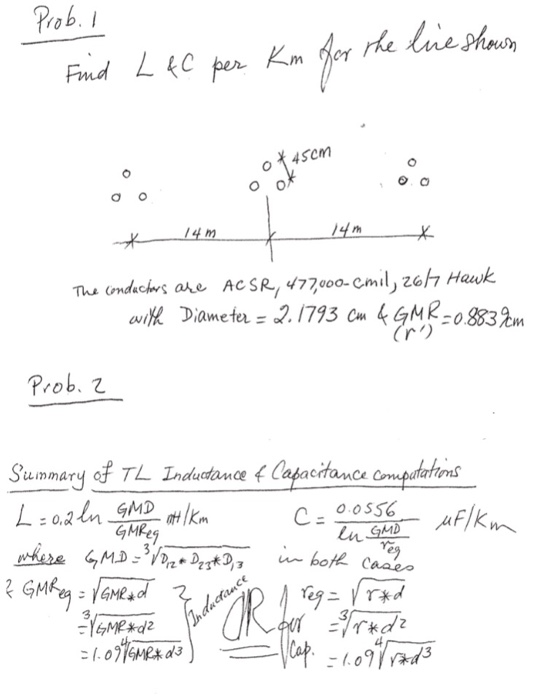 Prob. 1
Find L & C per Km for the line shown
45cm
14m 14m
The conductors are ACSR, 477,000-cmil, 26/7 Hawk
with Diameter = 2.1793 cm & GMR = 0.8839cm
(r')
Prob. 2
Summary of TL Inductance & Capacitance computations
L = 0.2 ln GMD/GMReq mH/Km C = 0.0556/ln GMD/req μF/Km
where GMD = ³√D12 * D23 * D13 in both cases
& GMReq = √GMR*d req = √r*d
= ³√GMR*d² = ³√r*d²
= 1.09 ⁴√GMR*d³ = 1.09 ⁴√r*d³
Inductance OR for Cap.